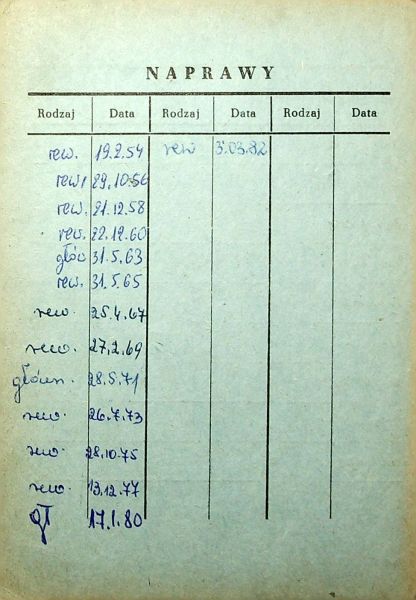 NAPRAWY
Rodzaj Data Rodzaj Data Rodzaj Data
rew. 19.2.54 rew 3.03.82
rew. 29.10.56
rew. 21.12.58
rew. 22.12.60
głów 31.5.63
rew. 31.5.65
rew. 25.4.67
rew. 27.2.69
główn. 28.5.71
rew. 26.7.73
rew. 28.10.75
rew. 13.12.77
gł 17.1.80